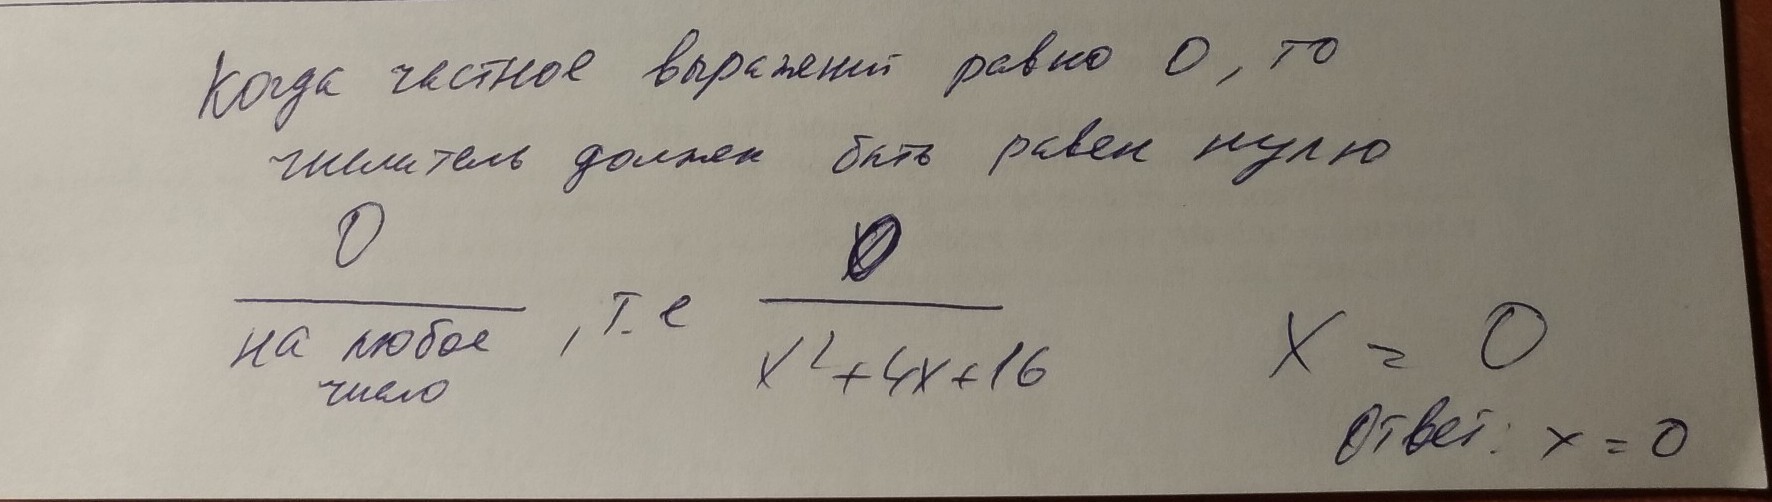 Когда частное выражений равно 0, то
числитель должен быть равен нулю
0
на любое
число
, т.е
0
x²+4x+16
x = 0
Ответ: x = 0